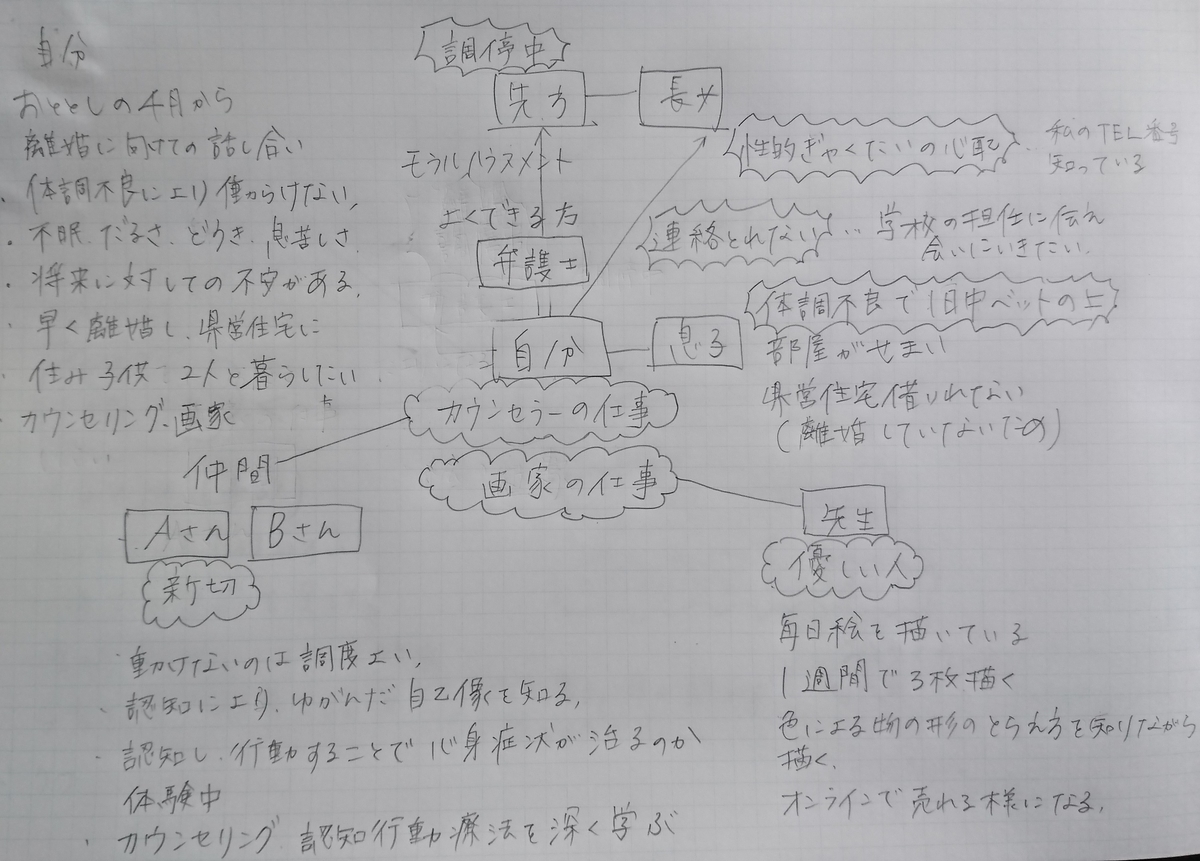 自分
おととしの4月から
離婚に向けての話し合い
・体調不良により働らけない。
・不眠、だるさ、どうき、息苦しさ
・将来に対しての不安がある。
・早く離婚し、県営住宅に
・住み子供2人と暮らしたい
・カウンセリング、画家
調停中
先方
長女
モラルハラスメント
性的ぎゃくたいの心配
私のTEL番号
知っている
よくできる方
弁護士
連絡とれない
…学校の担任に伝え
会いにいきたい。
自分
息子
体調不良で1日中ベットの上
部屋がせまい
県営住宅借りれてない
(離婚していないため)
カウンセラーの仕事
画家の仕事
仲間
Aさん
Bさん
新切
先生
優しい人
動けないのは調度よい。
・認知により、ゆがんだ自己像を知る。
・認知し、行動することで心身症状が治るのか
体験中
・カウンセリング 認知行動療法を深く学ぶ
毎日絵を描いている
1週間で3枚描く
色による物の形のとらえ方を知りながら
描く。
オンラインで売れる様になる。